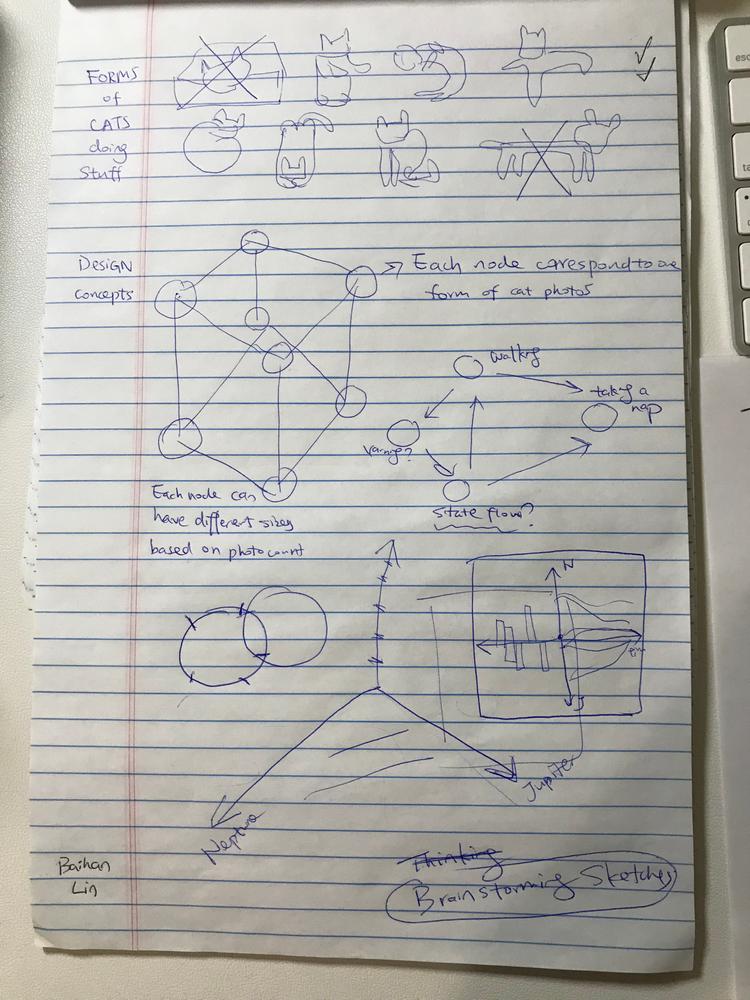 FORMS
of
CATS
doing
Stuff
DESIGN
concepts
Each node correspond to one
form of cat photos
walking
taking a
nap
State flow?
Each node can
have different sizes
based on photo count
N
J
Jupiter
Neptune
Baihan
Lin
Thinking
Brainstorming Sketches
esc